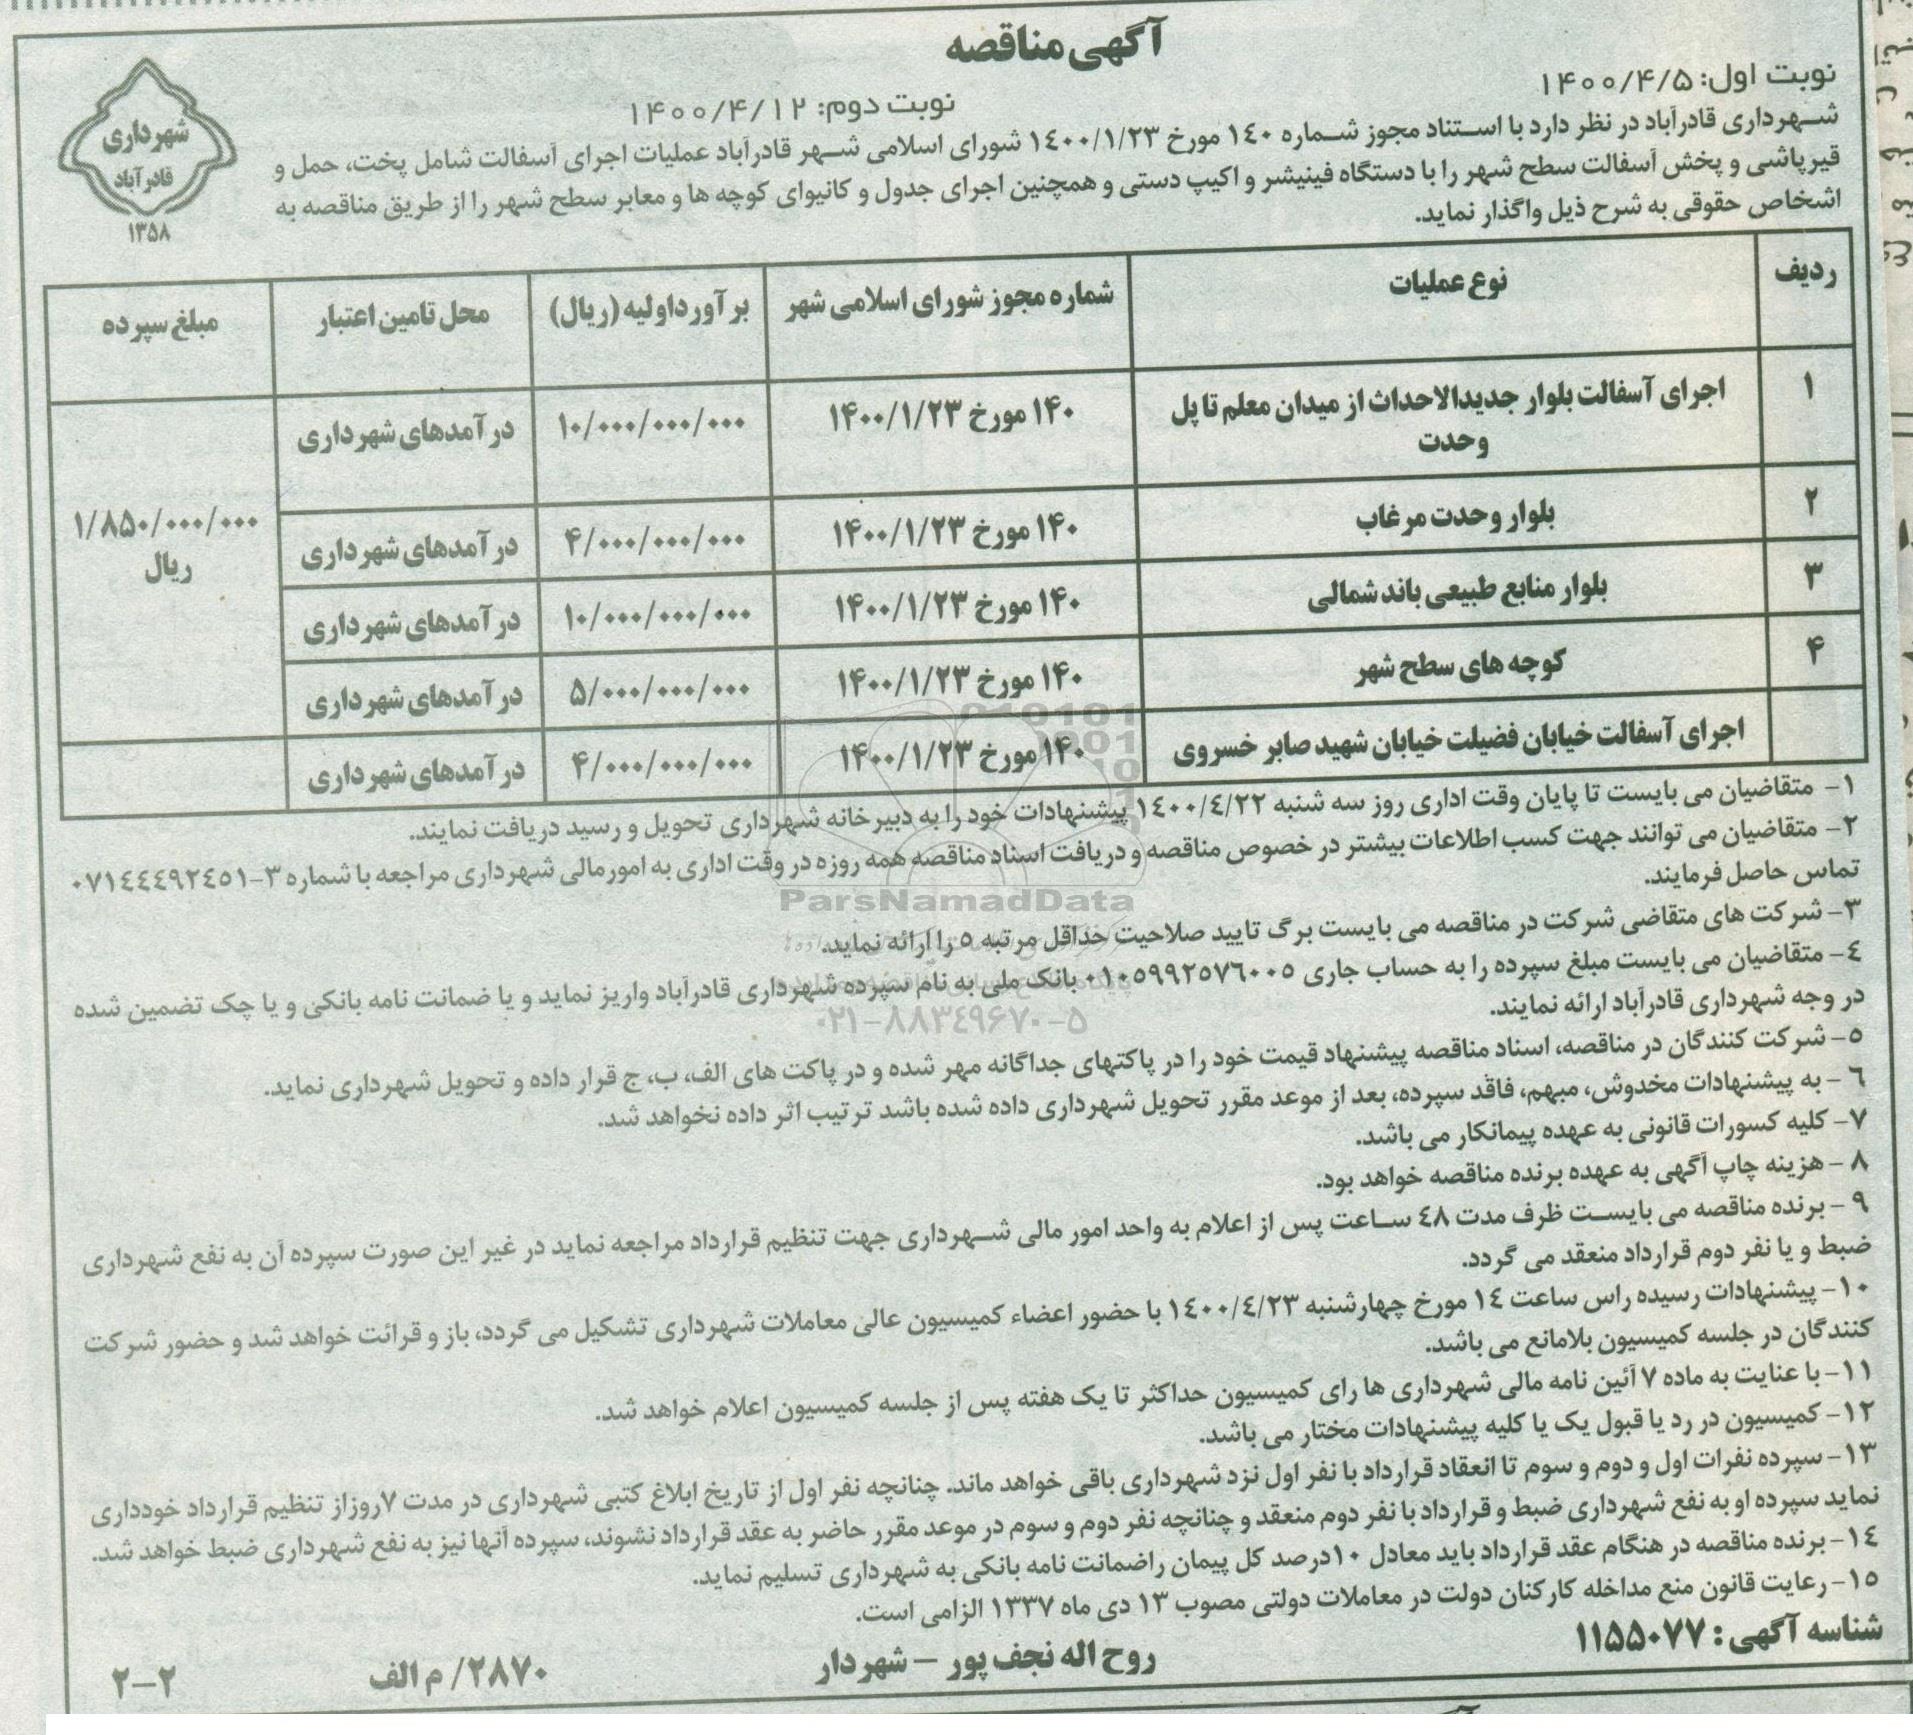 آگهی مناقصه
نوبت اول: ۱۴۰۰/۴/۵
نوبت دوم: ۱۴۰۰/۴/۱۲
شهرداری
قادرآباد
۱۳۵۸
شهرداری قادرآباد در نظر دارد با استناد مجوز شماره ۱۴۰ مورخ ۱۴۰۰/۱/۲۳ شورای اسلامی شهر قادرآباد عملیات اجرای آسفالت شامل پخت، حمل و
قیرپاشی و پخش آسفالت سطح شهر را با دستگاه فینیشر و اکیپ دستی و همچنین اجرای جدول و کانیوای کوچه ها و معابر سطح شهر را از طریق مناقصه به
اشخاص حقوقی به شرح ذیل واگذار نماید.
ردیف نوع عملیات شماره مجوز شورای اسلامی شهر برآورد اولیه (ریال) محل تامین اعتبار مبلغ سپرده
۱ اجرای آسفالت بلوار جدیدالاحداث از میدان معلم تا پل ۱۴۰ مورخ ۱۴۰۰/۱/۲۳ ۱۰/۰۰۰/۰۰۰/۰۰۰ درآمدهای شهرداری
وحدت
۲ بلوار وحدت مرغاب ۱۴۰ مورخ ۱۴۰۰/۱/۲۳ ۴/۰۰۰/۰۰۰/۰۰۰ درآمدهای شهرداری ۱/۸۵۰/۰۰۰/۰۰۰
ریال
۳ بلوار منابع طبیعی باند شمالی ۱۴۰ مورخ ۱۴۰۰/۱/۲۳ ۱۰/۰۰۰/۰۰۰/۰۰۰ درآمدهای شهرداری
۴ کوچه های سطح شهر ۱۴۰ مورخ ۱۴۰۰/۱/۲۳ ۵/۰۰۰/۰۰۰/۰۰۰ درآمدهای شهرداری
اجرای آسفالت خیابان فضیلت خیابان شهید صابر خسروی ۱۴۰ مورخ ۱۴۰۰/۱/۲۳ ۴/۰۰۰/۰۰۰/۰۰۰ درآمدهای شهرداری
۱- متقاضیان می بایست تا پایان وقت اداری روز سه شنبه ۱۴۰۰/۴/۲۲ پیشنهادات خود را به دبیرخانه شهرداری تحویل و رسید دریافت نمایند.
۲- متقاضیان می توانند جهت کسب اطلاعات بیشتر در خصوص مناقصه و دریافت اسناد مناقصه همه روزه در وقت اداری به امورمالی شهرداری مراجعه با شماره ۳-۰۷۱۴۴۴۹۲۴۵۱
تماس حاصل فرمایند.
۳- شرکت های متقاضی شرکت در مناقصه می بایست برگ تایید صلاحیت حداقل مرتبه ۵ را ارائه نماید.
۴- متقاضیان می بایست مبلغ سپرده را به حساب جاری ۰۱۰۵۹۹۲۵۷۶۰۰۵ بانک ملی به نام سپرده شهرداری قادرآباد واریز نماید و یا ضمانت نامه بانکی و یا چک تضمین شده
در وجه شهرداری قادرآباد ارائه نمایند.
۵- شرکت کنندگان در مناقصه، اسناد مناقصه پیشنهاد قیمت خود را در پاکتهای جداگانه مهر شده و در پاکت های الف، ب، ج قرار داده و تحویل شهرداری نماید.
۶- به پیشنهادات مخدوش، مبهم، فاقد سپرده، بعد از موعد مقرر تحویل شهرداری داده شده باشد ترتیب اثر داده نخواهد شد.
۷- کلیه کسورات قانونی به عهده پیمانکار می باشد.
۸- هزینه چاپ آگهی به عهده برنده مناقصه خواهد بود.
۹- برنده مناقصه می بایست ظرف مدت ۴۸ ساعت پس از اعلام به واحد امور مالی شهرداری جهت تنظیم قرارداد مراجعه نماید در غیر این صورت سپرده آن به نفع شهرداری
ضبط و یا نفر دوم قرارداد منعقد می گردد.
۱۰- پیشنهادات رسیده راس ساعت ۱۴ مورخ چهارشنبه ۱۴۰۰/۴/۲۳ با حضور اعضاء کمیسیون عالی معاملات شهرداری تشکیل می گردد، باز و قرائت خواهد شد و حضور شرکت
کنندگان در جلسه کمیسیون بلامانع می باشد.
۱۱- با عنایت به ماده ۷ آئین نامه مالی شهرداری ها رای کمیسیون حداکثر تا یک هفته پس از جلسه کمیسیون اعلام خواهد شد.
۱۲- کمیسیون در رد یا قبول یک یا کلیه پیشنهادات مختار می باشد.
۱۳- سپرده نفرات اول و دوم و سوم تا انعقاد قرارداد با نفر اول نزد شهرداری باقی خواهد ماند. چنانچه نفر اول از تاریخ ابلاغ کتبی شهرداری در مدت ۷روزاز تنظیم قرارداد خودداری
نماید سپرده او به نفع شهرداری ضبط و قرارداد با نفر دوم منعقد و چنانچه نفر دوم و سوم در موعد مقرر حاضر به عقد قرارداد نشوند، سپرده آنها نیز به نفع شهرداری ضبط خواهد شد.
۱۴- برنده مناقصه در هنگام عقد قرارداد باید معادل ۱۰درصد کل پیمان راضمانت نامه بانکی به شهرداری تسلیم نماید.
۱۵- رعایت قانون منع مداخله کارکنان دولت در معاملات دولتی مصوب ۱۳ دی ماه ۱۳۳۷ الزامی است.
شناسه آگهی : ۱۱۵۵۰۷۷
روح اله نجف پور - شهردار
۲۸۷۰/ م الف
۲-۲
ParsNamadData
۰۲۱-۸۸۳۴۹۶۷۰-۵